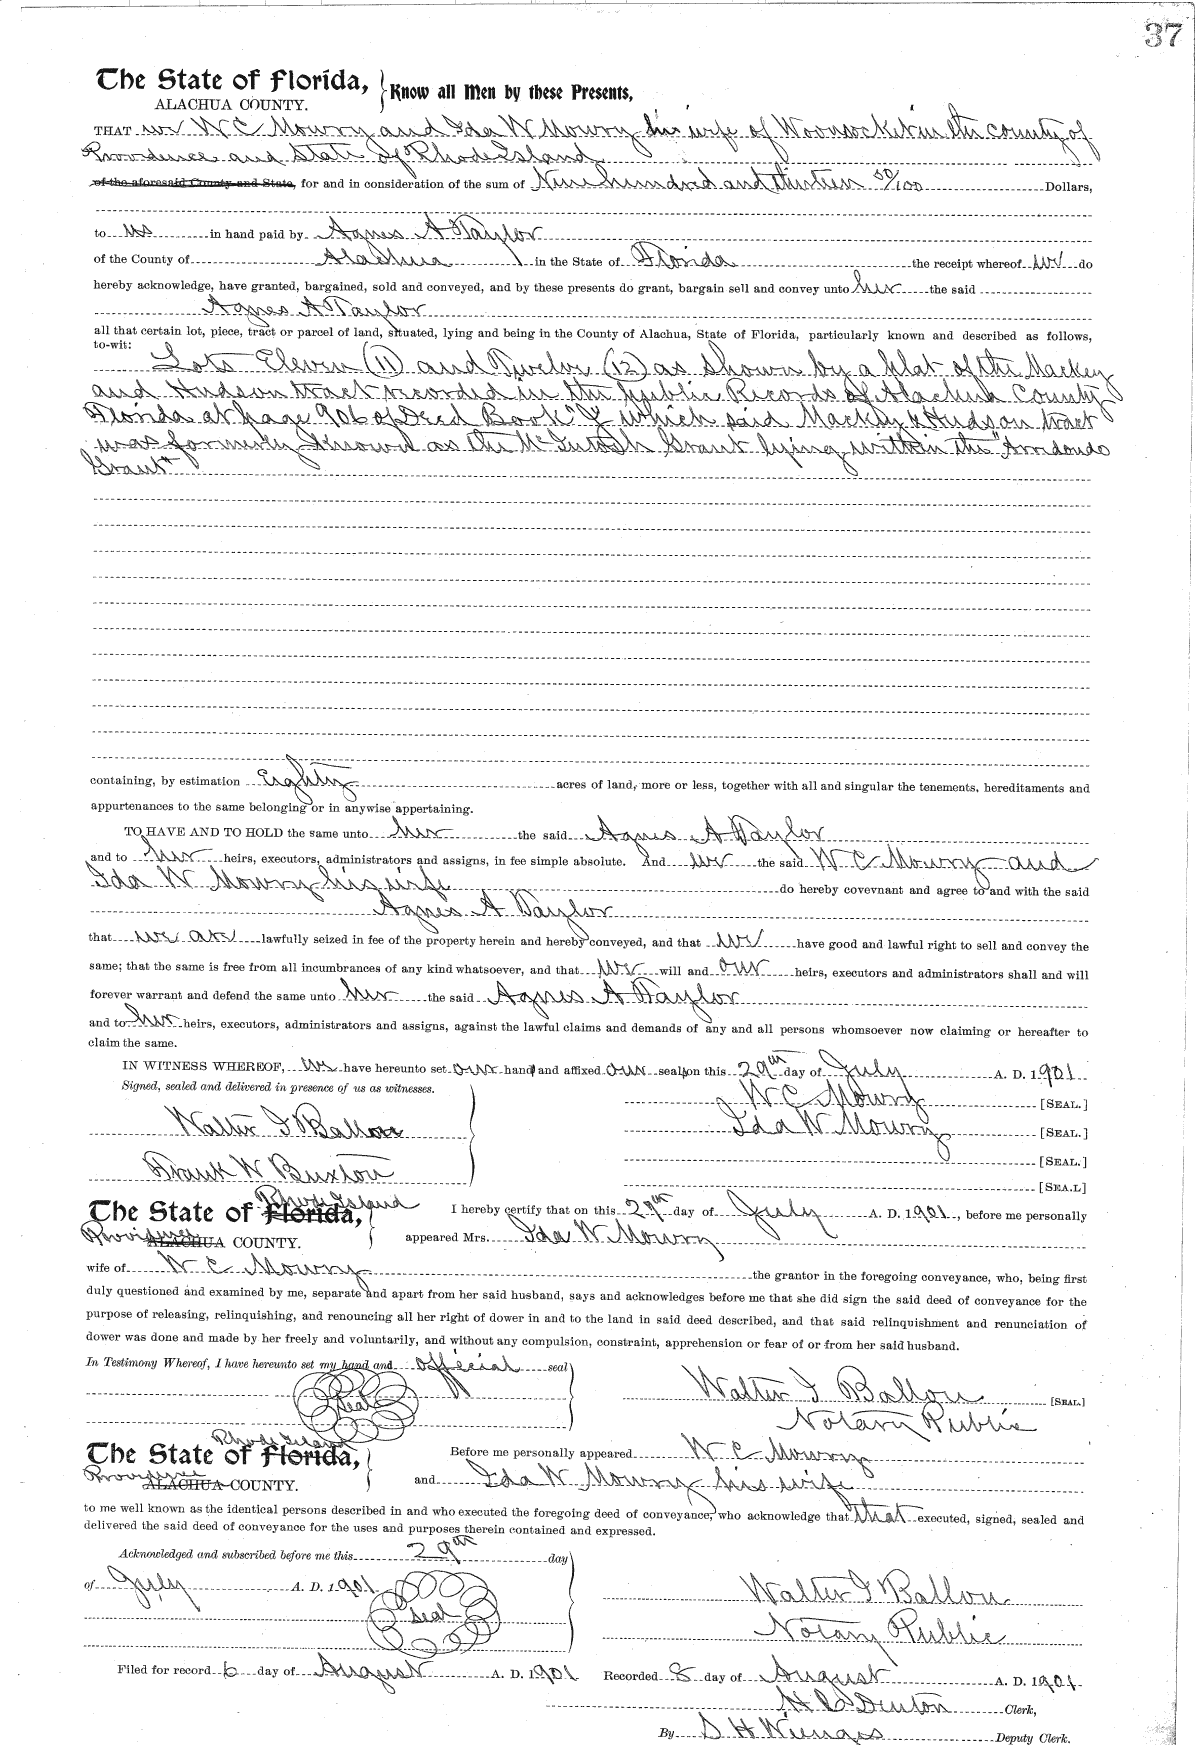 37
The State of Florida,
ALACHUA COUNTY.
Know all Men by these Presents,
THAT we W C Mowry and Ida W Mowry his wife of Woonsocket in the county of
Providence and State of Rhode Island
of the aforesaid County and State, for and in consideration of the sum of Nine hundred and thirteen 50/100 Dollars,
to us in hand paid by Agnes A Taylor
of the County of Alachua in the State of Florida the receipt whereof we do
hereby acknowledge, have granted, bargained, sold and conveyed, and by these presents do grant, bargain sell and convey unto her the said
Agnes A Taylor
all that certain lot, piece, tract or parcel of land, situated, lying and being in the County of Alachua, State of Florida, particularly known and described as follows,
to-wit:
Lots Eleven (11) and Twelve (12) as shown by a plat of the Mackey
and Hudson tract recorded in the public Records of Alachua County
Florida at page 906 of Deed Book "Y" which said Mackey & Hudson tract
was formerly known as the McIntosh Grant lying within the "Arredondo
Grant"
containing, by estimation Eighty acres of land, more or less, together with all and singular the tenements, hereditaments and
appurtenances to the same belonging or in anywise appertaining.
TO HAVE AND TO HOLD the same unto her the said Agnes A Taylor
and to her heirs, executors, administrators and assigns, in fee simple absolute. And we the said W C Mowry and
Ida W Mowry his wife do hereby covevnant and agree to and with the said
Agnes A Taylor
that we are lawfully seized in fee of the property herein and hereby conveyed, and that we have good and lawful right to sell and convey the
same; that the same is free from all incumbrances of any kind whatsoever, and that we will and our heirs, executors and administrators shall and will
forever warrant and defend the same unto her the said Agnes A Taylor
and to her heirs, executors, administrators and assigns, against the lawful claims and demands of any and all persons whomsoever now claiming or hereafter to
claim the same.
IN WITNESS WHEREOF, we have hereunto set our hand and affixed our seals on this 29th day of July A. D. 1901
Signed, sealed and delivered in presence of us as witnesses.
W C Mowry [SEAL.]
Walter F Ballou
Ida W Mowry [SEAL.]
[SEAL.]
Frank W Buxton
[SEA.L]
Rhode Island
The State of Florida,
I hereby certify that on this 29th day of July A. D. 1901, before me personally
Providence
ALACHUA COUNTY.
appeared Mrs. Ida W Mowry
wife of W C Mowry the grantor in the foregoing conveyance, who, being first
duly questioned and examined by me, separate and apart from her said husband, says and acknowledges before me that she did sign the said deed of conveyance for the
purpose of releasing, relinquishing, and renouncing all her right of dower in and to the land in said deed described, and that said relinquishment and renunciation of
dower was done and made by her freely and voluntarily, and without any compulsion, constraint, apprehension or fear of or from her said husband.
In Testimony Whereof, I have hereunto set my hand and official seal
Seal
Walter F Ballou [SEAL]
Notary Public
Rhode Island
The State of Florida,
Before me personally appeared W C Mowry
Providence
ALACHUA COUNTY.
and Ida W Mowry his wife
to me well known as the identical persons described in and who executed the foregoing deed of conveyance, who acknowledge that that executed, signed, sealed and
delivered the said deed of conveyance for the uses and purposes therein contained and expressed.
Acknowledged and subscribed before me this 29th day
of July A. D. 1901
Seal
Walter F Ballou
Notary Public
Filed for record 6 day of August A. D. 1901
Recorded 8 day of August A. D. 1901
Denton Clerk,
By S H Wienges Deputy Clerk.